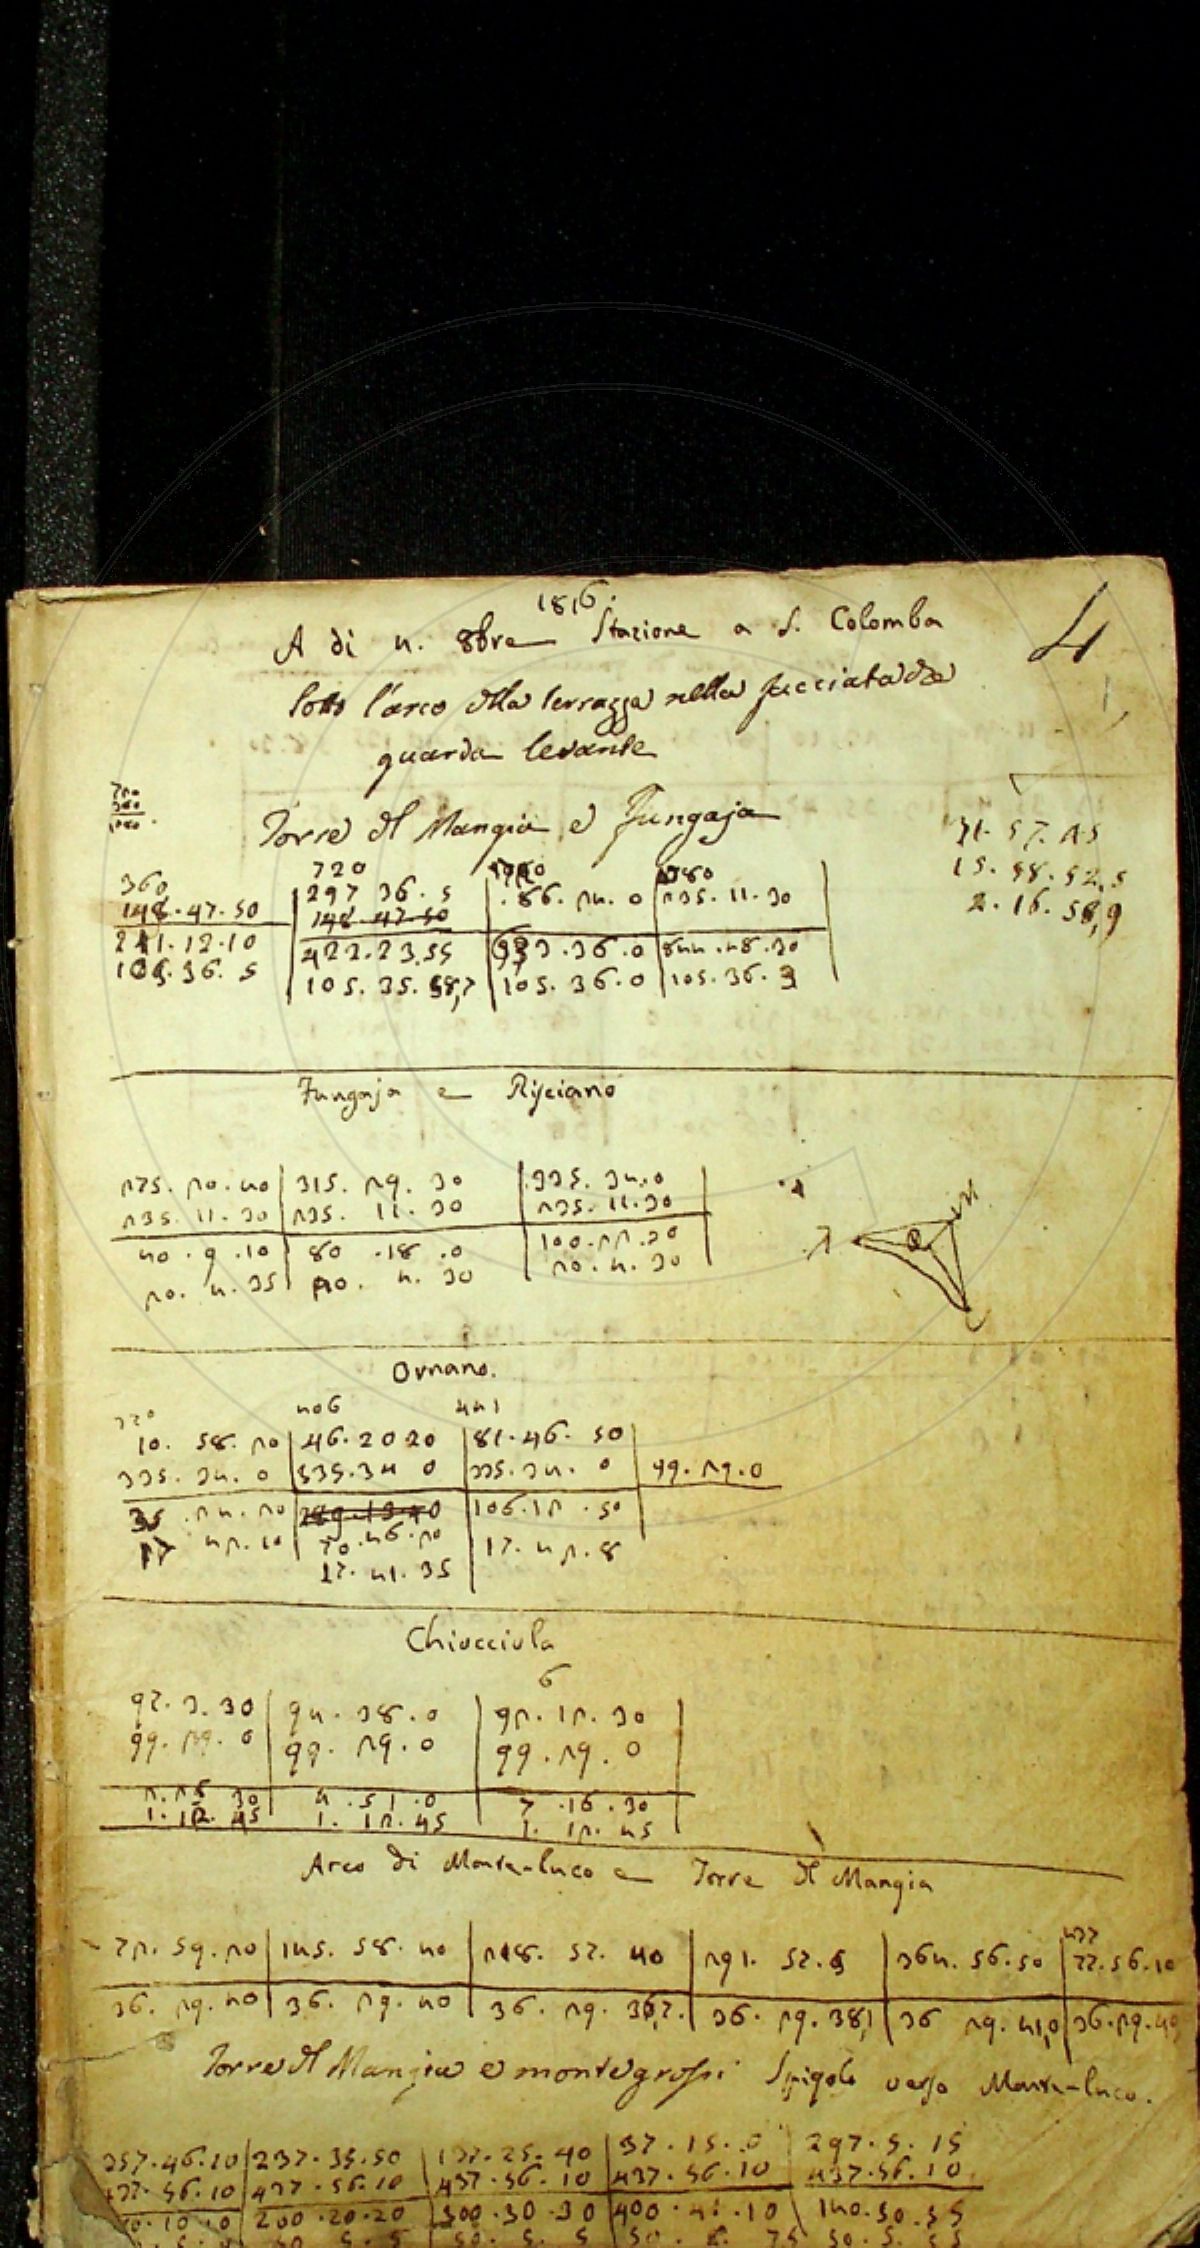 1816.
A di 4. 8bre Stazione a S. Colomba
4
sotto l'arco della terrazza nella facciata che
guarda levante
Torre del Mangia e Fungaja
720
360
1080
31. 57. 45
15. 58. 52,5
2. 16. 58,9
360 720 1080
148.47.50 297 36.5 .86.24.0 235.11.30
148.47.50
211.12.10 422.23.55 633.36.0 844.48.30
105.36.5 105.35.58,7 105.36.0 105.36.3
Fungaja e Risciano
275.20.40 315.29.30 335.34.0
235.11.30 235.11.30 235.11.30
40.9.10 80.18.0 100.22.30
20.4.35 20.4.30 20.4.30
Ornano.
10.58.20 46.20 20 81.46.50
335.34.0 335.34 0 335.34.0 99.29.0
35.24.20 106.12.50
17 42.10 70.46.20 17.42.8
17.41.35
Chiocciola
6
97.3.30 94.38.0 92.12.30
99.29.0 99.29.0 99.29.0
2.25 30 4.51.0 7.16.30
1.12.45 1.12.45 1.12.45
Arco di Monte-luco e Torre del Mangia
437
72.59.20 145.58.40 218.57.40 291.57.5 364.56.50 77.56.10
36.29.40 36.29.40 36.29.36,7. 36.29.38,1 36 29.41,0 36.29.40
Torre del Mangia e montegrossi Spigolo verso Monte-luco.
357.46.10 237.35.50 137.25.40 37.15.0 297.5.15
437.56.10 437.56.10 437.56.10 437.56.10 437.56.10
200.20.20 300.30.30 400.41.10 140.50.55